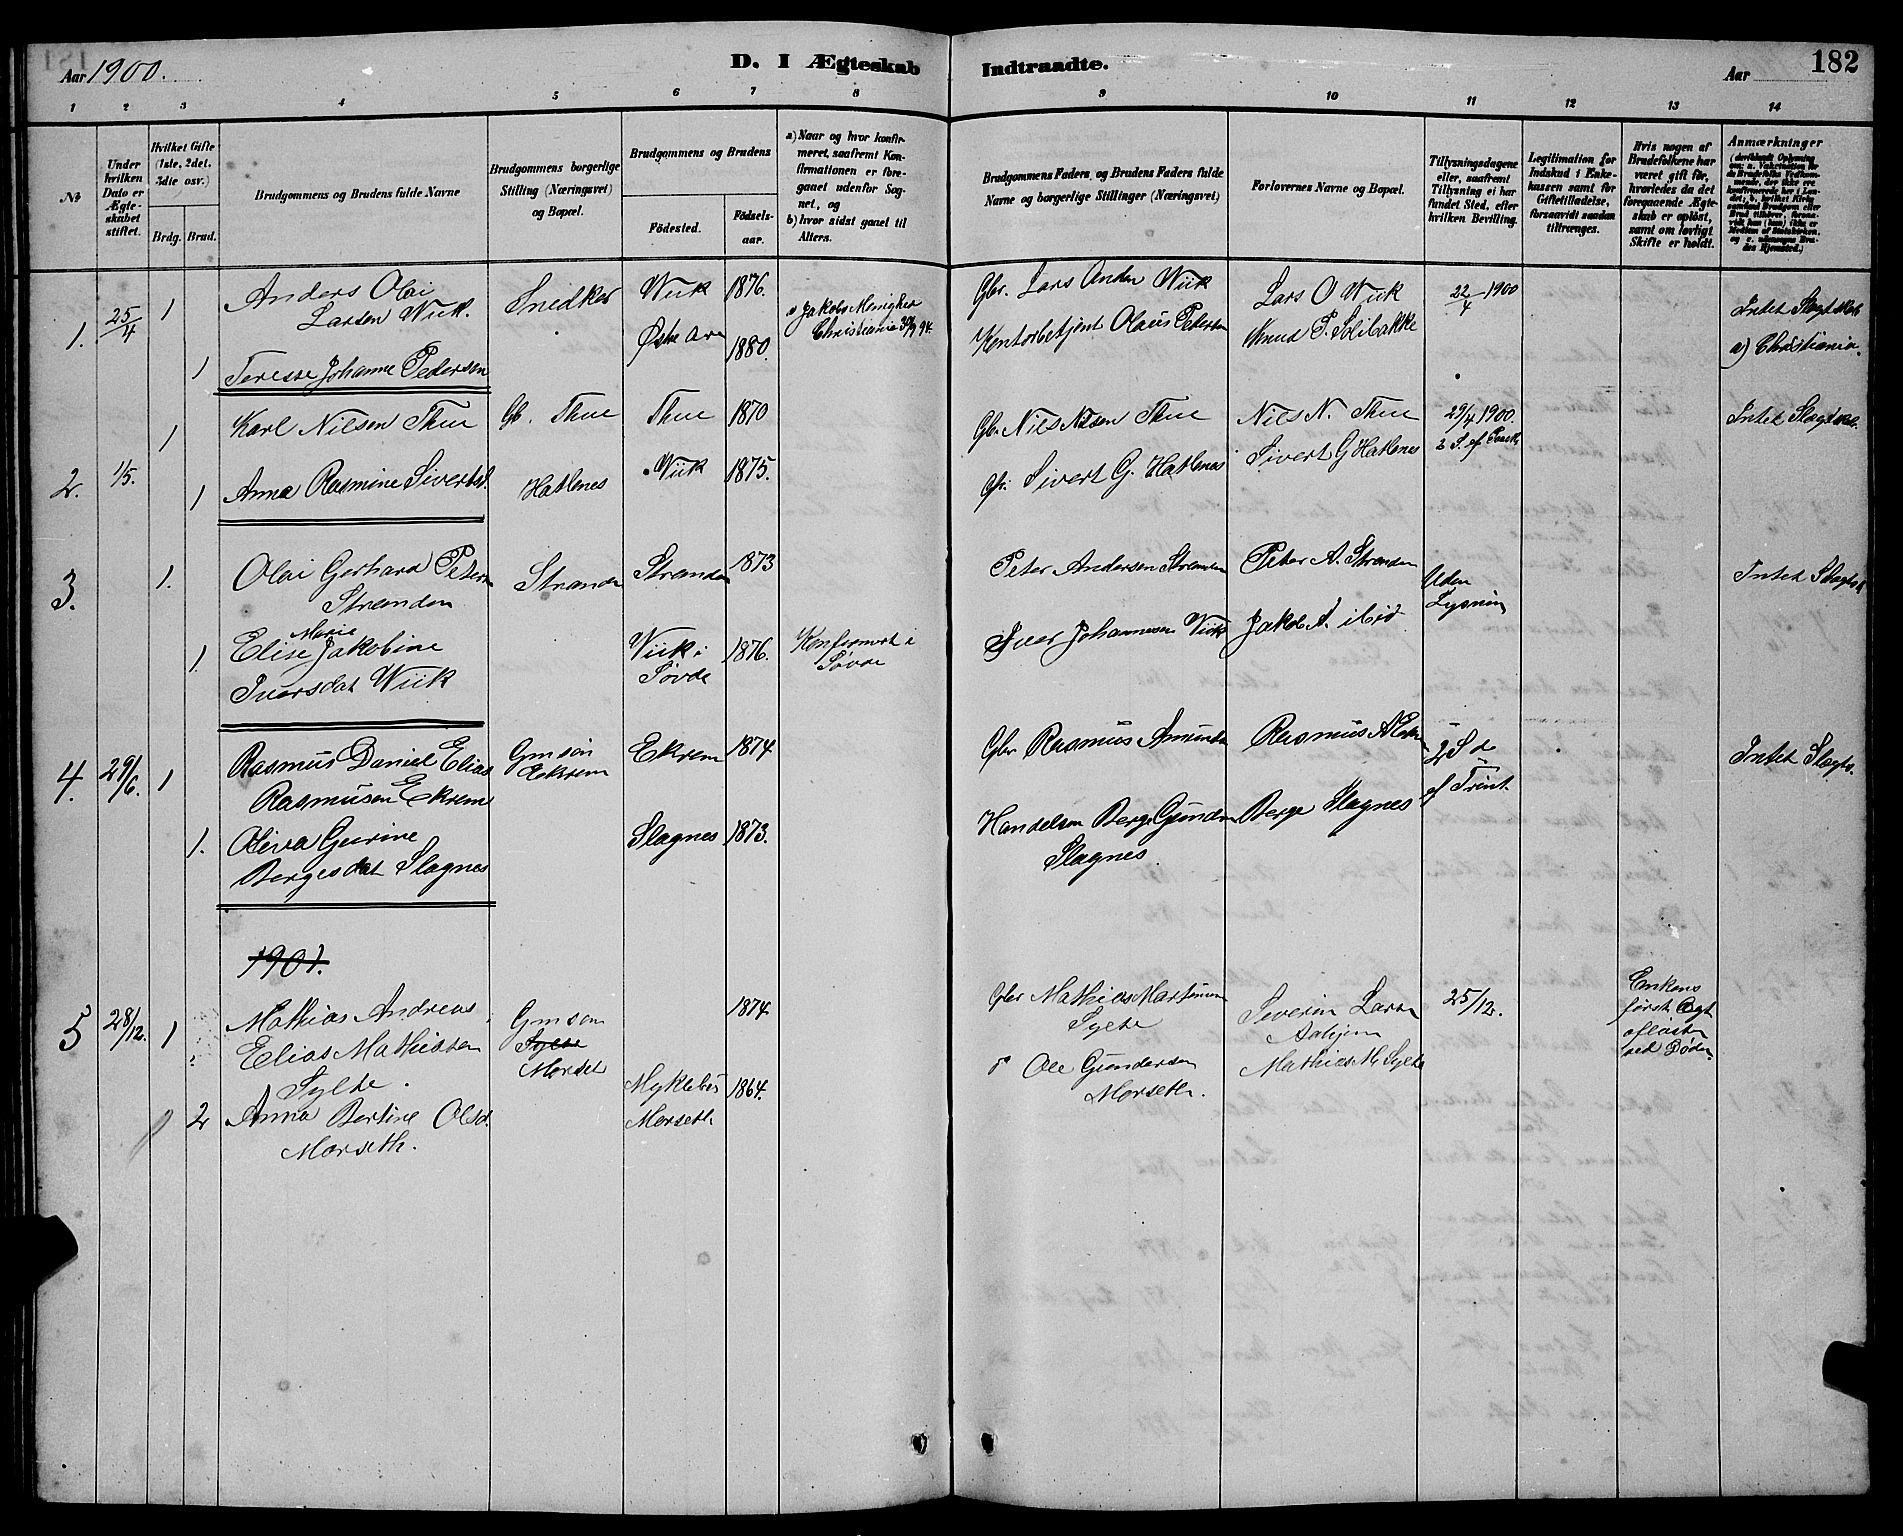 Aar 1900.
D. I Ægteskab
Indtraadte.
Aar
182
1 2 3 4 5 6 7 8
9 10 11 12 13 14
№
Under hvilken Dato er Ægteskabet stiftet.
Hvilket Gifte (1ste, 2det, 3die osv.)
Brdg. Brud.
Brudgommens og Brudens fulde Navne
Brudgommens borgerlige Stilling (Næringsvei) og Bopæl.
Brudgommens og Brudens
Fødested.
Fødselsaar.
a) Naar og hvor konfirmeret, saafremt Konfirmationen er foregaaet udenfor Sognet, og
b) hvor sidst gaaet til Alters.
Brudgommens Faders og Brudens Faders fulde Navne og borgerlige Stillinger (Næringsvei)
Forlovernes Navne og Bopæl.
Tillysningsdagene eller, saafremt Tillysning ei har fundet Sted, efter hvilken Bevilling.
Legitimation for Indskud i Enkekassen samt for Giftetilladelse, forsaavidt saadan tiltrænges.
Hvis nogen af Brudefolkene har været gift før, hvorledes da det foregaaende Ægteskab er opløst, samt om lovligt Skifte er holdt.
Anmærkninger
1. 25/4 1
Anders Olai
Larsen Wiik.
Snidker
Wiik
1876.
Gbr. Lars Anders Wiik
Lars O Wiik
22/4 1900
Intet Slagtskab
1 Teresse Johanne Pedersen
1880.
a) Jakobs Menighed
Christiania
Kontorbetjent Olaus Pedersen
Knud P. Solibakke
a) Christiania.
2. 1/5. 1
Karl Nilsen Thue
Gb. Thue
Thue
1870
Gbr. Nils Nilsen Thue
Nils N. Thue
29/4 1900.
2 S. ef Paask
Intet Slagtskb.
1 Anna Rasmine Sivertsd.
Hatlenes
Wiik
1875.
Gbr. Sivert G. Hatlenes
Sivert G Hatlenes
3. 1.
Olai Gerhard Petersn
Stranden
Stranden
Stranden
1873
Peter Andersen Stranden
Peter A. Stranden
Uden
Lysning
Intet Slagts
1. Elise Marie Jakobine
Iversdat Wiik
Wiik i
Søvde
1876.
Konfirmert i
Søvde
Iver Johannesen Wiik
Jakob A. ibid
4. 29/6. 1
Rasmus Daniel Elias
Rasmusen Ekrem
Gmsøn
Ekrem
Ekrem
1874
Gbr Rasmus Amunds
Rasmus A Ekre
2 S d
ef Trint.
Intet Slagts.
1. Oliva Gurine
Bergesdat Slagnes
Slagnes
1873.
Handelsm Berge Gunders
Slagnes.
Berge Slagnes
1901.
5 28/12. 1
Mathias Andreas
Elias Mathiassen
Sylte.
Gmson
Sylte
Morset
1874
Gbr Mathias Martinusn
Sylte
Severin Larsn
Aahjem
25/12.
Enkens
første Ægt
opløst
ved Døden
2 Anna Bertine Olsd.
Morseth.
Myklebus
Morseth
1864.
Ole Gundersen
Morseth.
Mathias M Sylte